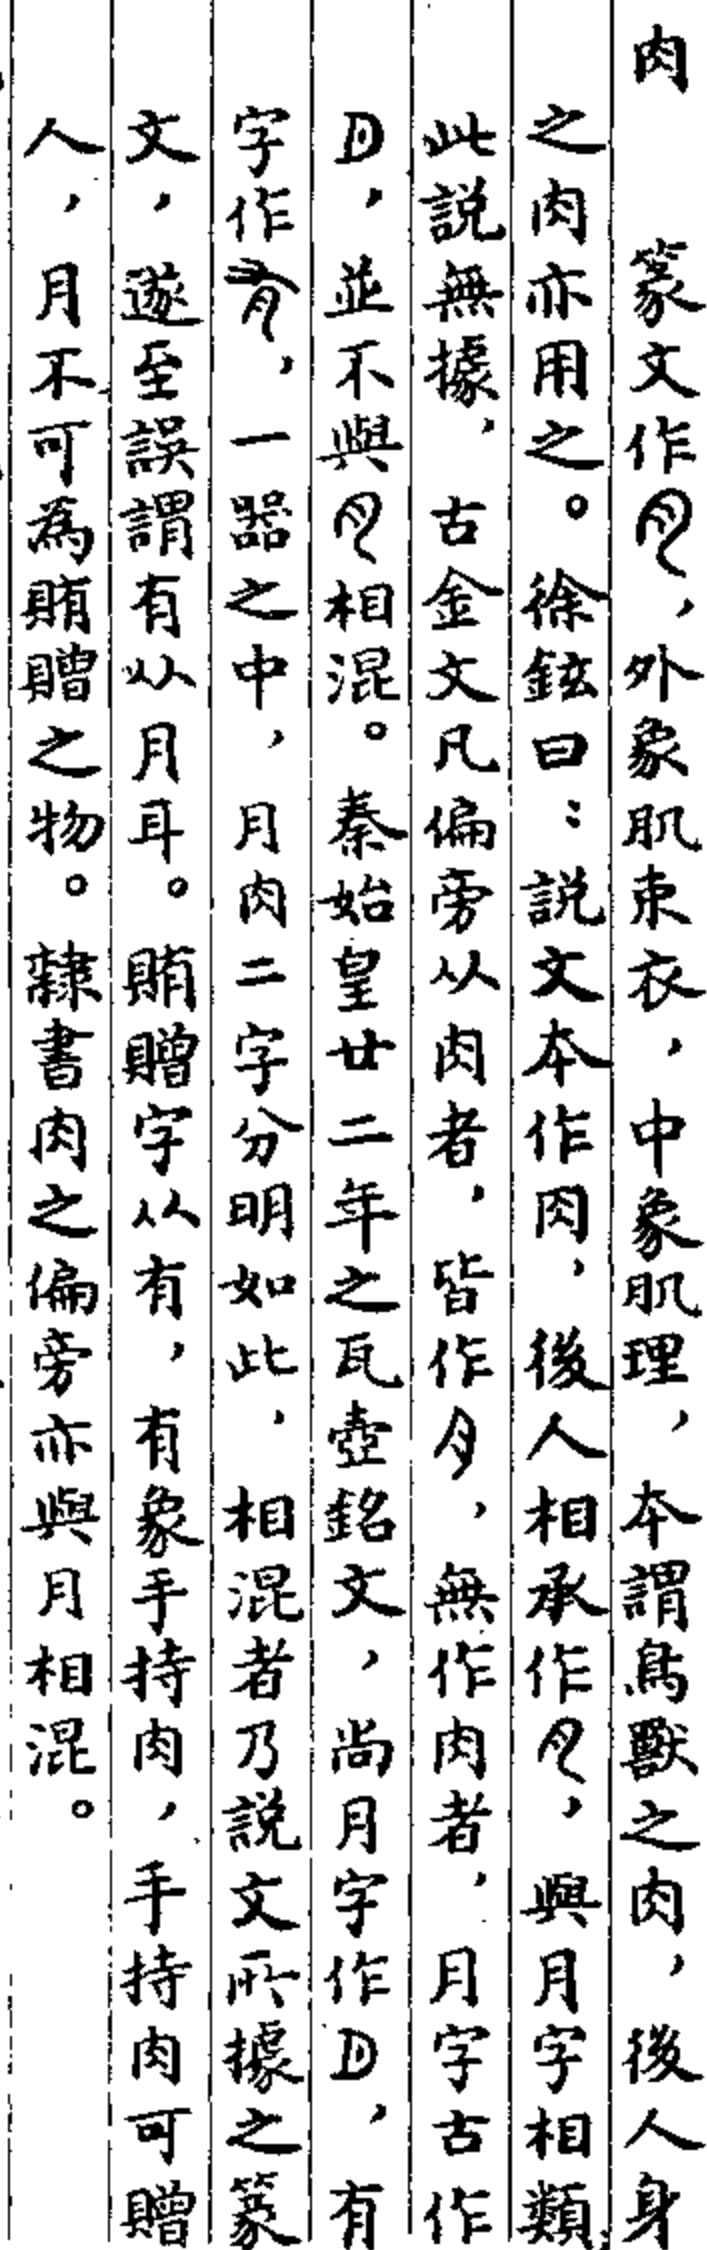 肉　篆文作，外象肌束衣，中象肌理，本謂鳥獸之肉，後人身
之肉亦用之。徐鉉曰：說文本作肉，後人相承作，與月字相類，
此說無據，古金文凡偏旁从肉者，皆作，無作肉者，月字古作
D，並不與相混。秦始皇廿二年之瓦壺銘文，尚月字作D，有
字作，一器之中，月肉二字分明如此，相混者乃說文所據之篆
文，遂至誤謂有从月耳。賄贈字从有，有象手持肉，手持肉可贈
人，月不可為賄贈之物。隸書肉之偏旁亦與月相混。